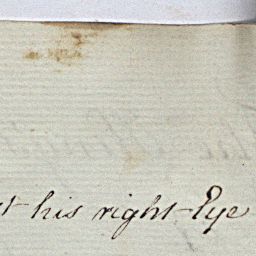 his right Eye